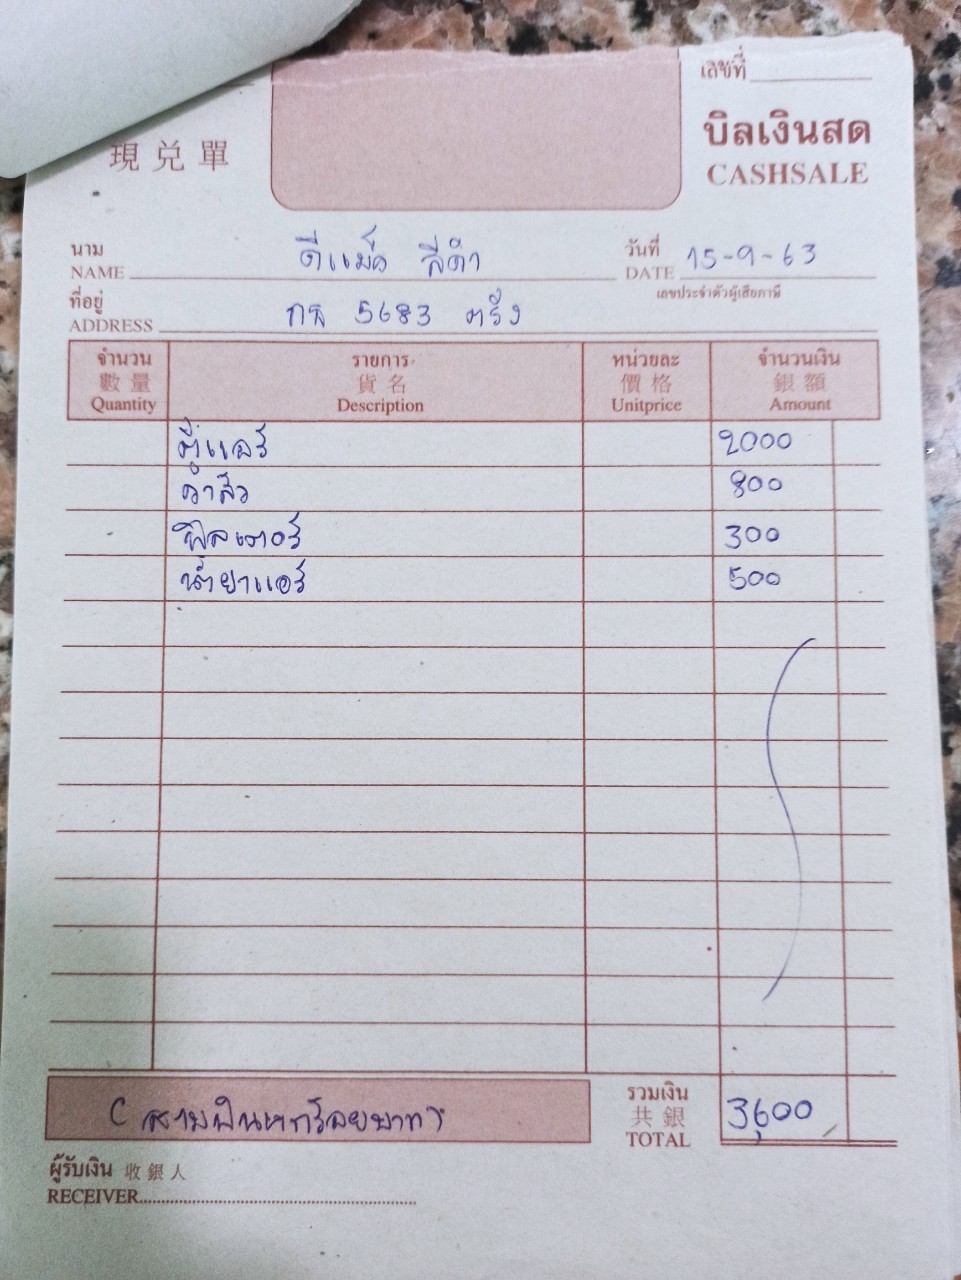 เลขที่
現兑單
บิลเงินสด
CASHSALE
นาม
NAME
ดีแม็ค สีดำ
วันที่
DATE
15-9-63
ที่อยู่
ADDRESS
กธ 5683 ตรัง
เลขประจำตัวผู้เสียภาษี
จำนวน รายการ หน่วยละ จำนวนเงิน
數量 貨名 價格 銀額
Quantity Description Unitprice Amount
ตู้แอร์ 2000
วาล์ว 800
ฟิลเตอร์ 300
น้ำยาแอร์ 500
(สามพันหกร้อยบาท)
รวมเงิน
共銀
TOTAL
3,600
ผู้รับเงิน 收銀人
RECEIVER